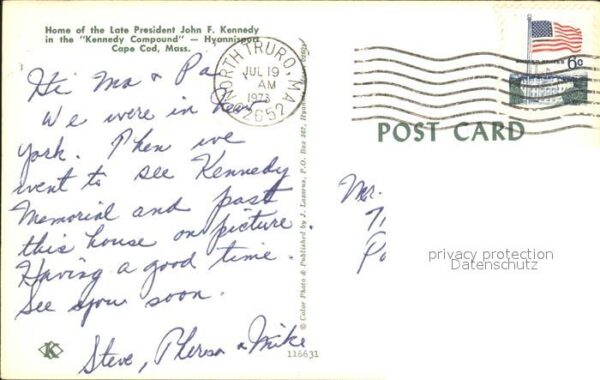 Home of the Late President John F. Kennedy
in the "Kennedy Compound" — Hyannisport
Cape Cod, Mass.
NORTH TRURO, MA
JUL 19
AM
1973
02652
6c
POST CARD
Hi Ma & Pa
We were in New
York. Then we
went to see Kennedy
Memorial and past
this house on picture.
Having a good time.
See you soon.
Steve, Theresa & Mike
Mr.
privacy protection
Datenschutz
© Color Photo & Published by J. Lazarus, P.O. Box 367,
K
116631